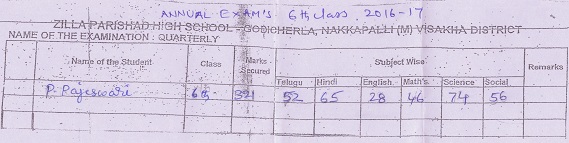 ANNUAL EXAM'S 6th class 2016-17
ZILLA PARISHAD HIGH SCHOOL - GODICHERLA, NAKKAPALLI (M) VISAKHA DISTRICT
NAME OF THE EXAMINATION : QUARTERLY
Name of the Student Class Marks Secured Subject Wise Remarks
Telugu Hindi English Math's Science Social
P. Rajeswari 6th 321 52 65 28 46 74 56